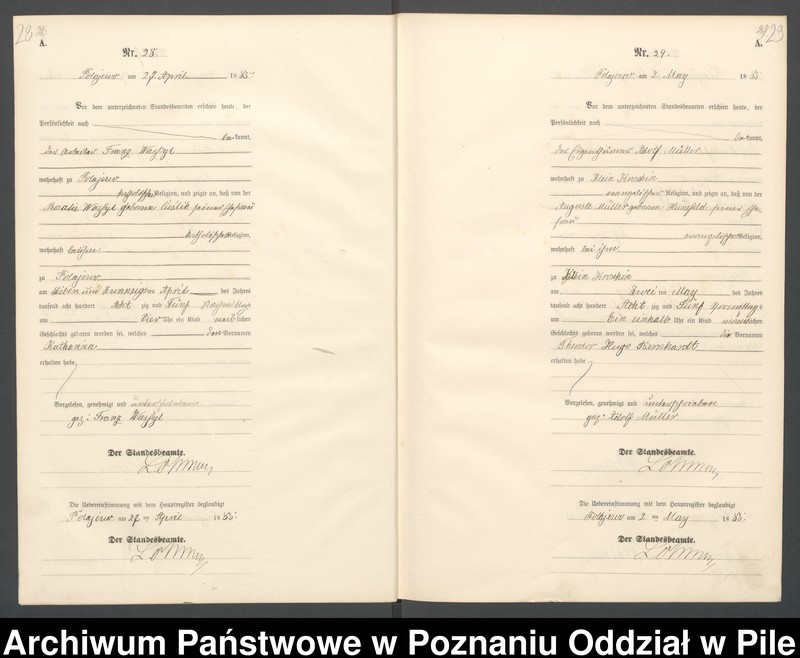 28
A.
Nr. 28.
Polajewo am 27. April 1885.
Vor dem unterzeichneten Standesbeamten erschien heute, der
Persönlichkeit nach
bekannt,
der Arbeiter Franz
wohnhaft zu Polajewo
katholischer Religion, und zeigte an, daß von der
geborene seiner Ehefrau
katholischer Religion,
wohnhaft
zu Polajewo
am Sieben und zwanzigsten April des Jahres
tausend acht hundert Acht zig und Fünf Nachmittags
um Vier Uhr ein Kind weiblichen
Geschlechts geboren worden sei, welches den Vornamen
Katharina
erhalten habe
Vorgelesen, genehmigt und unterschrieben
gez: Franz
Der Standesbeamte.
Die Uebereinstimmung mit dem Hauptregister beglaubigt
Polajewo am 27 ten April 1885.
Der Standesbeamte.
29
A.
Nr. 29.
Polajewo am 2. May 1885.
Vor dem unterzeichneten Standesbeamten erschien heute, der
Persönlichkeit nach
bekannt,
der Eigenthümer Adolf Müller
wohnhaft zu Klein
evangelischer Religion, und zeigte an, daß von der
Auguste Müller geborene seiner Ehe-
frau
evangelischer Religion,
wohnhaft bei ihm
zu Klein
am Zwei ten May des Jahres
tausend acht hundert Acht zig und Fünf Vormittags
um Ein einhalb Uhr ein Kind männlichen
Geschlechts geboren worden sei, welches die Vornamen
Theodor Hugo Bernhardt
erhalten habe
Vorgelesen, genehmigt und unterschrieben
gez: Adolf Müller
Der Standesbeamte.
Die Uebereinstimmung mit dem Hauptregister beglaubigt
Polajewo am 2 ten May 1885.
Der Standesbeamte.
Archiwum Państwowe w Poznaniu Oddział w Pile